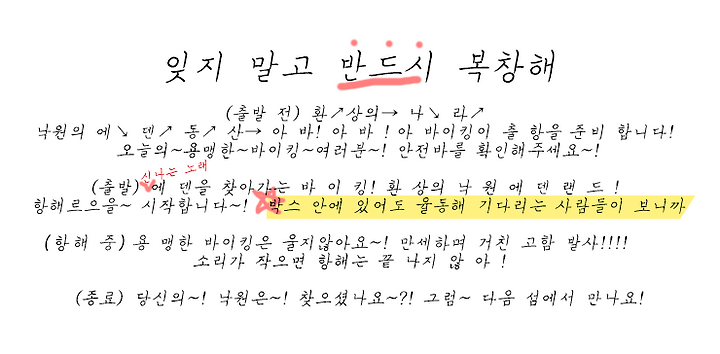 잊지 말고 반드시 복창해
(출발 전) 환↗상의→ 나↘ 라↗
낙원의 에↘ 덴↗ 동↗ 산→ 아 바! 아 바 ! 아 바이킹이 출 항을 준비 합니다!
오늘의~용맹한~바이킹~여러분~! 안전바를 확인해주세요~!
신나는 노래
(출발) 에 덴을 찾아가는 바 이 킹! 환 상의 낙 원 에 덴 랜 드 !
항해르으을~ 시작합니다~! 박스 안에 있어도 율동해 기다리는 사람들이 보니까
(항해 중) 용 맹한 바이킹은 울지않아요~! 만세하며 거친 고함 발사!!!!
소리가 작으면 항해는 끝 나지 않 아 !
(종료) 당신의~! 낙원은~! 찾으셨나요~?! 그럼~ 다음 섬에서 만나요!